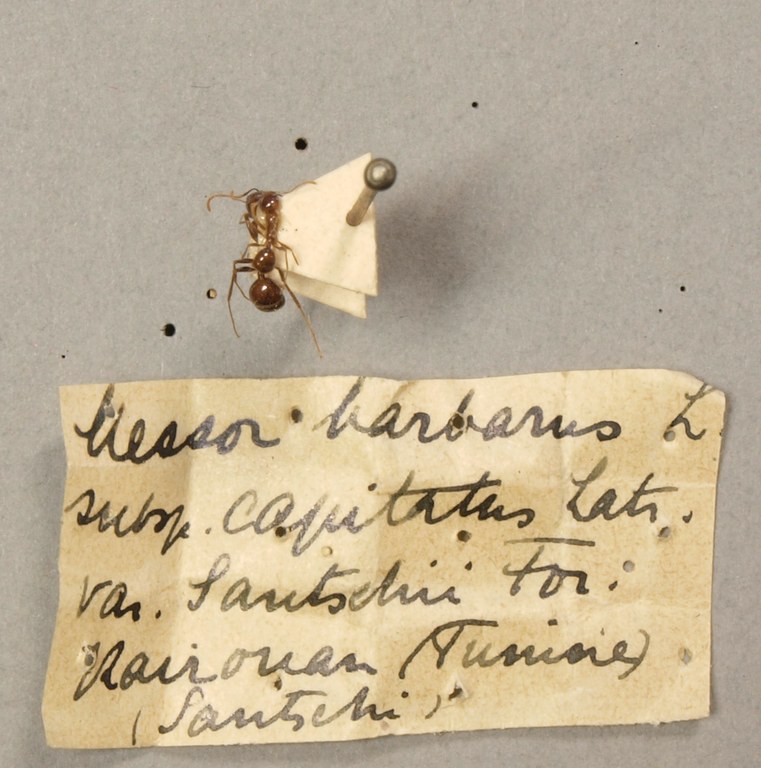 Messor barbarus L.
subsp. capitatus Latr.
var. Santschii For.
Kairouan (Tunisie)
(Santschi)